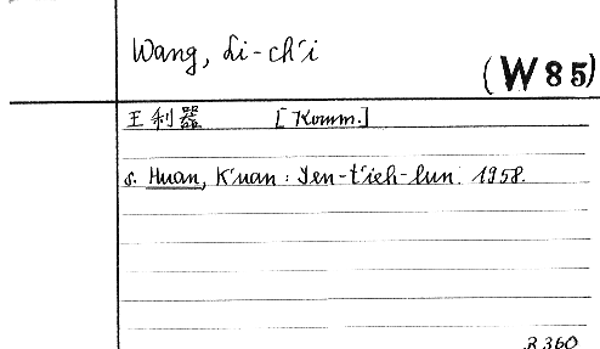 Wang, Li-ch'i
(W 85)
王利器 [Komm.]
s. Huan, K'uan: Yen-t'ieh-lun. 1958.
R 360